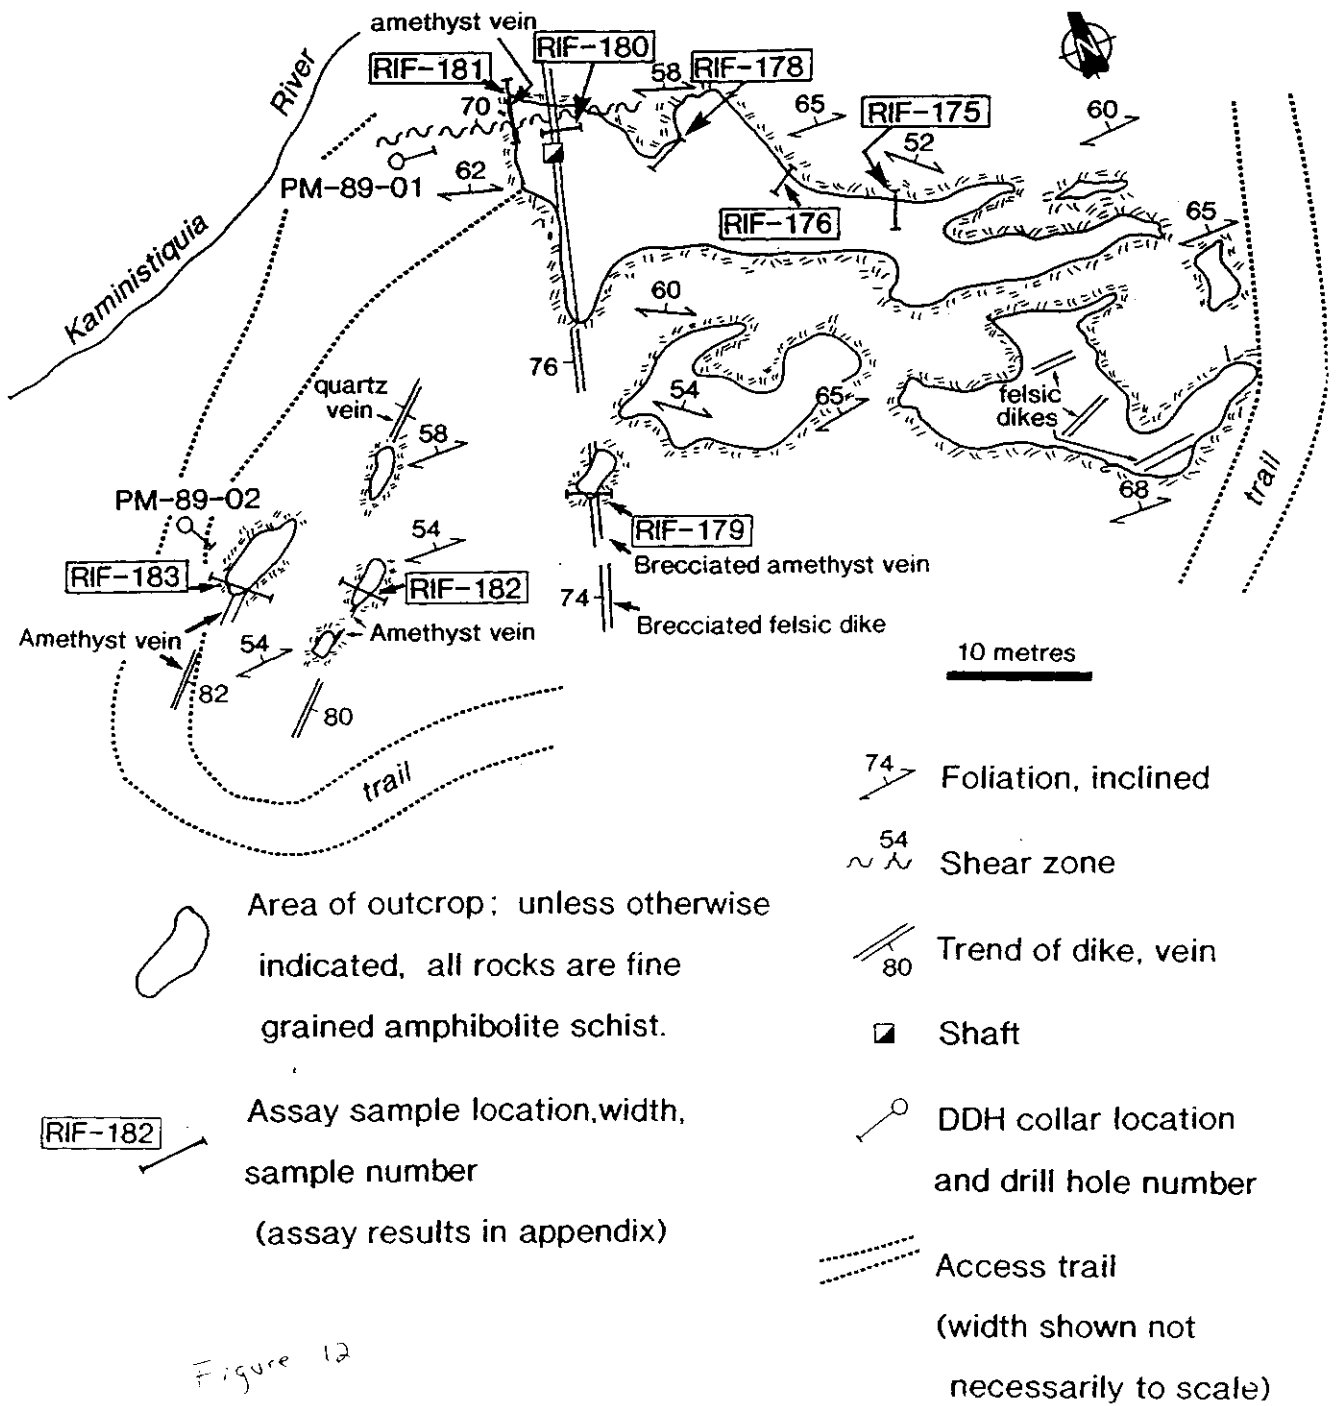 amethyst vein
RIF-181
RIF-180
RIF-178
58
65
RIF-175
60
N
River
70
52
PM-89-01
62
RIF-176
65
Kaministiquia
60
76
quartz
vein
54
65
felsic
dikes
58
PM-89-02
RIF-179
68
trail
54
Brecciated amethyst vein
RIF-183
RIF-182
74
Brecciated felsic dike
Amethyst vein
54
Amethyst vein
82
80
10 metres
trail
74
Foliation, inclined
54
Shear zone
80
Trend of dike, vein
Shaft
DDH collar location
and drill hole number
Access trail
(width shown not
necessarily to scale)
Area of outcrop; unless otherwise
indicated, all rocks are fine
grained amphibolite schist.
RIF-182
Assay sample location, width,
sample number
(assay results in appendix)
Figure 12